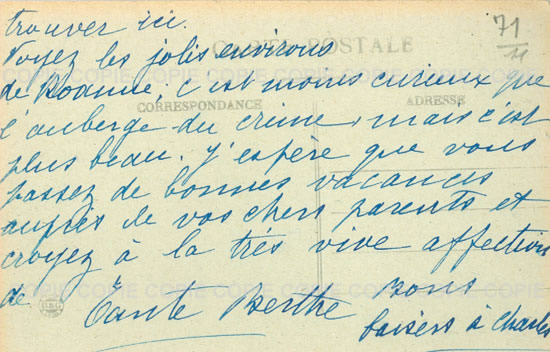 trouver ici.
Voyez les jolis environs
de Roanne, c'est moins curieux que
l'auberge du crime, mais c'est
plus beau. J'espère que vous
passez de bonnes vacances
auprès de vos chers parents et
croyez à la très vive affection
de Tante Berthe
bons
baisers à Charles
CARTE POSTALE
CORRESPONDANCE
ADRESSE
71
COPIE COPIE COPIE COPIE COPIE COPIE COPIE